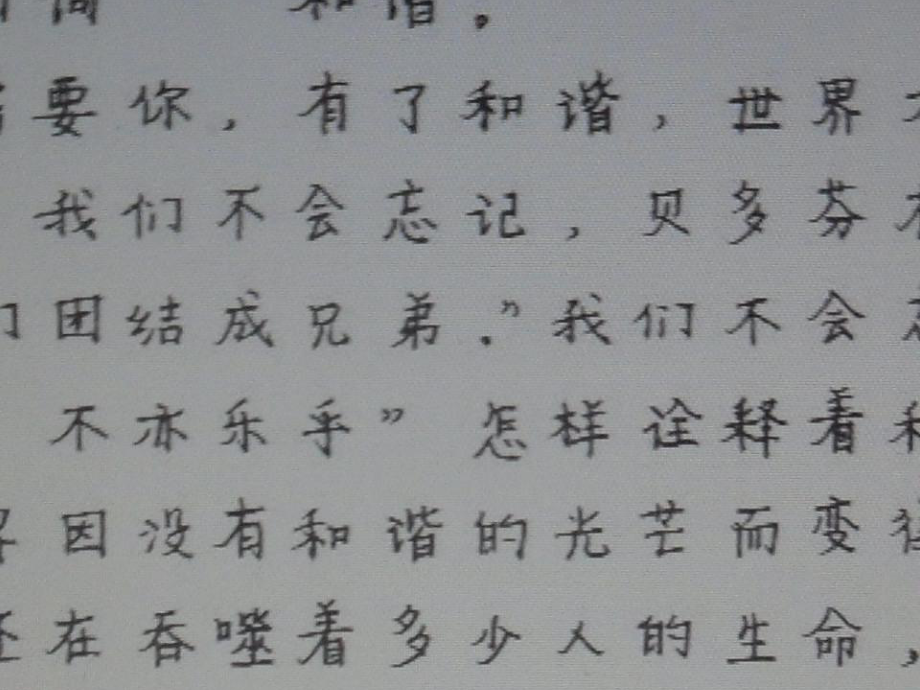 和谐。
要你，有了和谐，世界
我们不会忘记，贝多芬
们团结成兄弟。”我们不会
不亦乐乎”怎样诠释着
因没有和谐的光芒而变
还在吞噬着多少人的生命，